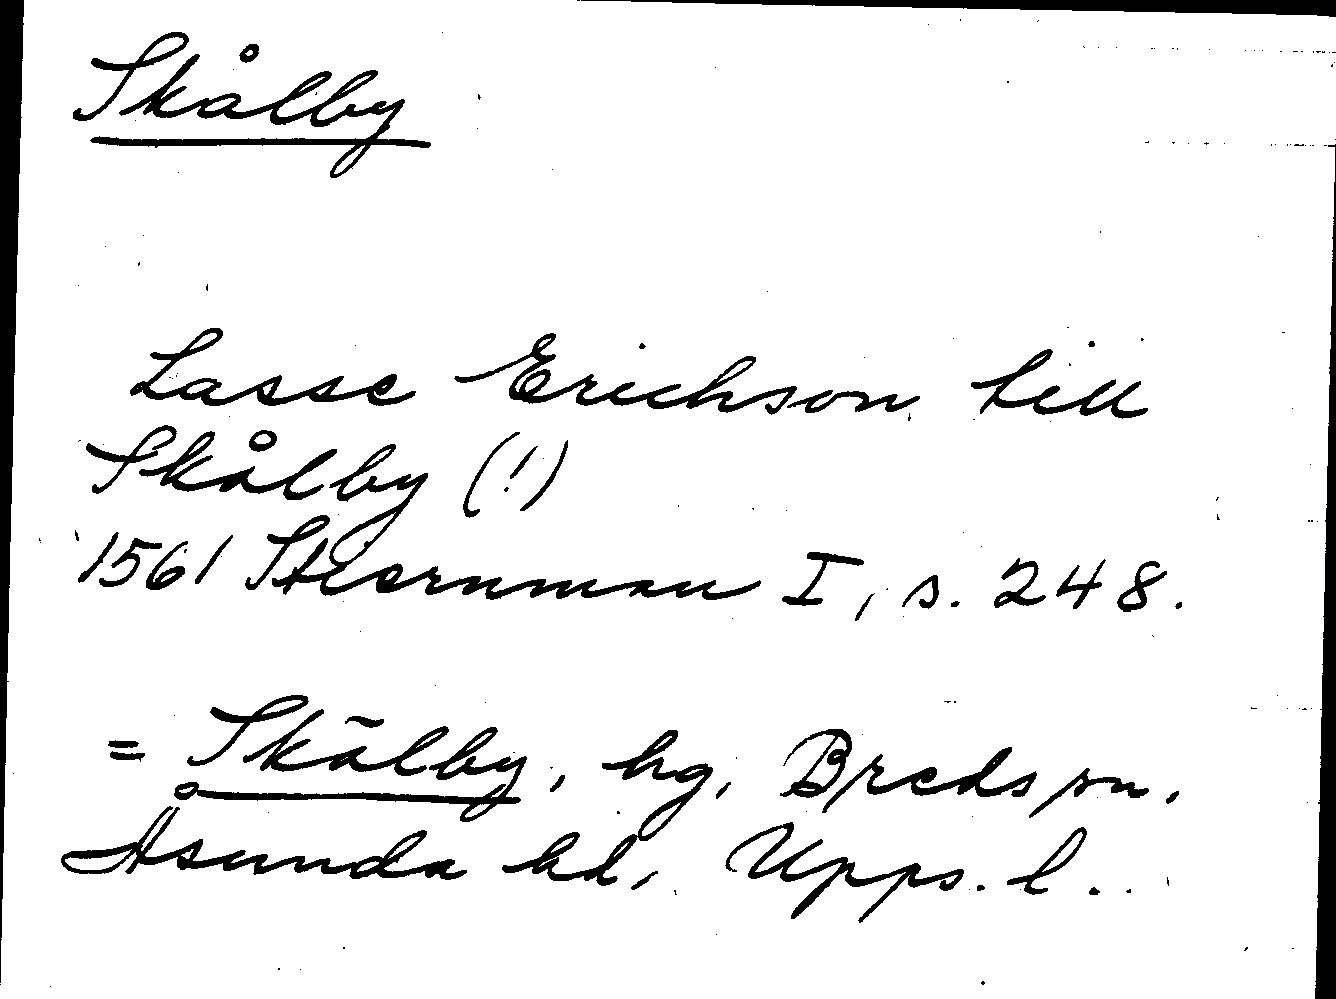 Skålby
Lasse Erichson till
Skålby (!)
1561 Stiernman I, s. 248.
= Skälby, hg, Breds sn.
Åsunda hd, Upps. l.